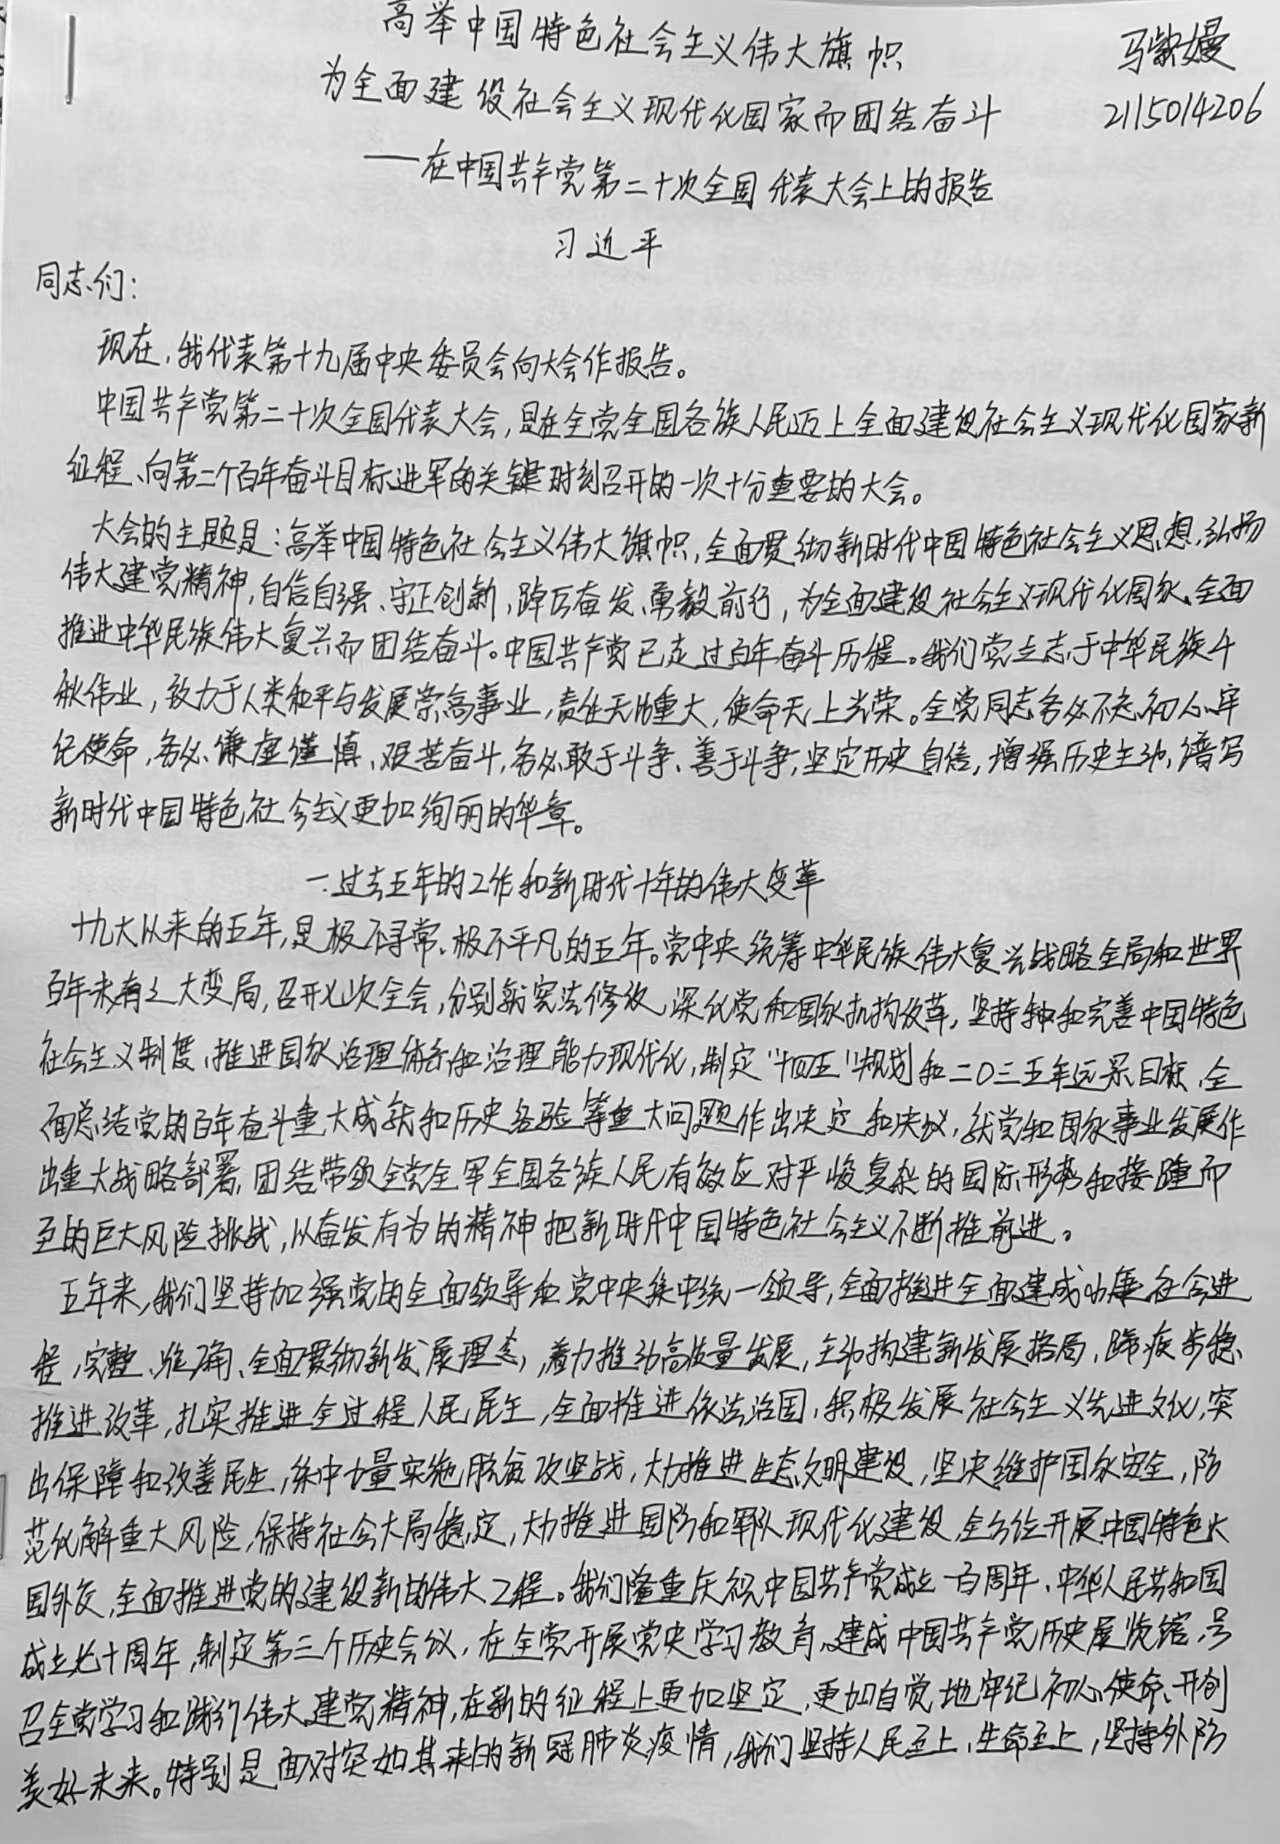 高举中国特色社会主义伟大旗帜
马紫嫚
为全面建设社会主义现代化国家而团结奋斗
2115014206
——在中国共产党第二十次全国代表大会上的报告
习近平
同志们：
现在，我代表第十九届中央委员会向大会作报告。
中国共产党第二十次全国代表大会，是在全党全国各族人民迈上全面建设社会主义现代化国家新
征程、向第二个百年奋斗目标进军的关键时刻召开的一次十分重要的大会。
大会的主题是：高举中国特色社会主义伟大旗帜，全面贯彻新时代中国特色社会主义思想，弘扬
伟大建党精神，自信自强、守正创新，踔厉奋发、勇毅前行，为全面建设社会主义现代化国家、全面
推进中华民族伟大复兴而团结奋斗。中国共产党已走过百年奋斗历程。我们党立志于中华民族千
秋伟业，致力于人类和平与发展崇高事业，责任无比重大，使命无上光荣。全党同志务必不忘初心、牢
记使命，务必谦虚谨慎、艰苦奋斗，务必敢于斗争、善于斗争，坚定历史自信，增强历史主动，谱写
新时代中国特色社会主义更加绚丽的华章。
一、过去五年的工作和新时代十年的伟大变革
十九大以来的五年，是极不寻常、极不平凡的五年。党中央统筹中华民族伟大复兴战略全局和世界
百年未有之大变局，召开七次全会，分别就宪法修改，深化党和国家机构改革，坚持和完善中国特色
社会主义制度、推进国家治理体系和治理能力现代化，制定“十四五”规划和二〇三五年远景目标，全
面总结党的百年奋斗重大成就和历史经验等重大问题作出决定和决议，就党和国家事业发展作
出重大战略部署，团结带领全党全军全国各族人民有效应对严峻复杂的国际形势和接踵而
至的巨大风险挑战，以奋发有为的精神把新时代中国特色社会主义不断推前进。
五年来，我们坚持加强党的全面领导和党中央集中统一领导，全面推进全面建成小康社会进
程，完整、准确、全面贯彻新发展理念，着力推动高质量发展，主动构建新发展格局，蹄疾步稳
推进改革，扎实推进全过程人民民主，全面推进依法治国，积极发展社会主义先进文化，突
出保障和改善民生，集中力量实施脱贫攻坚战，大力推进生态文明建设，坚决维护国家安全，防
范化解重大风险，保持社会大局稳定，大力推进国防和军队现代化建设，全方位开展中国特色大
国外交，全面推进党的建设新的伟大工程。我们隆重庆祝中国共产党成立一百周年、中华人民共和国
成立七十周年，制定第三个历史会议，在全党开展党史学习教育，建成中国共产党历史展览馆，号
召全党学习和践行伟大建党精神，在新的征程上更加坚定、更加自觉地牢记初心使命、开创
美好未来。特别是面对突如其来的新冠肺炎疫情，我们坚持人民至上、生命至上，坚持外防